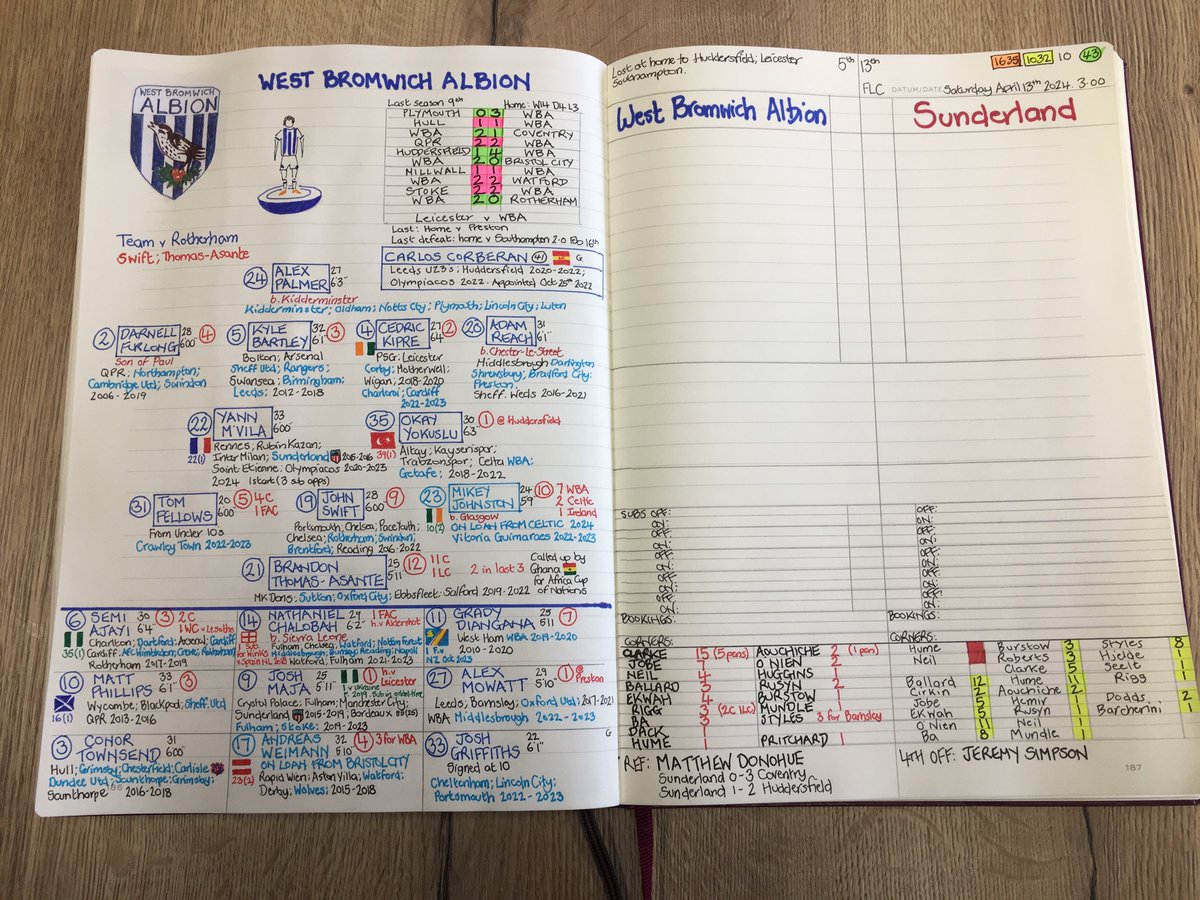 WEST BROMWICH ALBION
WEST BROMWICH
ALBION
Last season 9th Home: W14 D4 L3
PLYMOUTH 0 3 WBA
HULL 1 1 WBA
WBA 2 1 COVENTRY
QPR 2 2 WBA
HUDDERSFIELD 1 4 WBA
WBA 2 0 BRISTOL CITY
MILLWALL 1 1 WBA
WBA 2 2 WATFORD
STOKE 2 2 WBA
WBA 2 0 ROTHERHAM
Leicester v WBA
Last: Home v Preston
Last defeat: home v Southampton 2-0 Feb 16th
Team v Rotherham
Swift; Thomas-Asante
CARLOS CORBERAN 41 G
Leeds U23s; Huddersfield 2020-2022;
Olympiacos 2022. Appointed Oct 25th 2022
24 ALEX PALMER 27 6'3"
b. Kidderminster
Kidderminster; Oldham; Notts Cty; Plymouth; Lincoln City; Luton
2 DARNELL FURLONG 28 600" 4
Son of Paul
QPR; Northampton;
Cambridge Utd; Swindon
2006-2019
5 KYLE BARTLEY 32 61" 3
Bolton; Arsenal
Sheff Utd; Rangers;
Swansea; Birmingham;
Leeds; 2012-2018
4 CEDRIC KIPRE 27 64" 2
PSG; Leicester
Corby; Motherwell;
Wigan; 2018-2020
Charleroi; Cardiff
2022-2023
20 ADAM REACH 31 6'1"
b. Chester-Le-Street
Middlesbrough Darlington
Shrewsbury; Bradford City;
Preston;
Sheff. Weds 2016-2021
22 YANN M'VILA 33 600"
22(1)
Rennes; Rubin Kazan;
Inter Milan; Sunderland 2015-2016
Saint Etienne; Olympiacos 2020-2023
2024 1 start (3 sub apps)
35 OKAY YOKUSLU 30 63 1 @ Huddersfield
39(1)
Altay; Kayserispor;
Trabzonspor; Celta WBA;
Getafe; 2018-2022
31 TOM FELLOWS 20 600" 5 4C
1 FAC
From Under 10s
Crawley Town 2022-2023
19 JOHN SWIFT 28 600" 9
Portsmouth; Chelsea; Pace Youth;
Chelsea; Rotherham; Swindon;
Brentford; Reading 2016-2022
23 MIKEY JOHNSTON 24 59" 10 7 WBA
2 Celtic
1 Ireland
10(2)
b. Glasgow
ON LOAN FROM CELTIC 2024
Vitoria Guimaraes 2022-2023
21 BRANDON THOMAS-ASANTE 25 511 12 11C
1LC
2 in last 3
Called up by
Ghana
for Africa Cup
of Nations
MK Dons; Sutton; Oxford City; Ebbsfleet. Salford 2019-2022
6 SEMI AJAYI 30 64 3 2C
1 WC v Lesotho
35(1)
Charlton; Dartford; Arsenal; Cardiff
Cardiff. AFC Wimbledon; Crewe; Rotherham
Rotherham 2017-2019
14 NATHANIEL CHALOBAH 29 6'2" 1 FAC
h.v Aldershot
b. Sierra Leone
1 Sub. for Winks v Spain NL 2018
Fulham; Chelsea, Watford; Notts Forest
Middlesbrough; Burnley; Reading; Napoli
Watford; Fulham 2021-2023
11 GRADY DIANGANA 25 511 7
West Ham WBA 2019-2020
2010-2020
1 F.v
NZ Oct 2023
10 MATT PHILLIPS 33 61" 3
16(1)
Wycombe; Blackpool; Sheff. Utd
QPR 2013-2016
9 JOSH MAJA 25 5'11" 1 h.v Leicester
1 v Ukraine
F. 2019. Sub in 92nd time
Crystal Palace; Fulham; Manchester City;
Sunderland 2015-2019; Bordeaux
Fulham; Stoke; 2019-2023
27 ALEX MOWATT 29 5'10" 1 @ Preston
Leeds, Barnsley; Oxford Utd; 2017-2021
WBA Middlesbrough 2022-2023
3 CONOR TOWNSEND 31 600"
Hull; Grimsby; Chesterfield; Carlisle
Dundee Utd; Scunthorpe; Grimsby;
Scunthorpe 2016-2018
186
17 ANDREAS WEIMANN 32 5.10 4 3 for WBA
23(2)
ON LOAN FROM BRISTOL CITY
Rapid Wien; Aston Villa; Watford;
Derby; Wolves; 2015-2018
33 JOSH GRIFFITHS 22 6'1" G
Signed at 10
Cheltenham; Lincoln City;
Portsmouth 2022-2023
Lost at home to Huddersfield; Leicester
Southampton.
5th 13th
1635 1032 10 43
FLC DATUM/DATE Saturday April 13th 2024. 3:00
West Bromwich Albion
Sunderland
SUBS OFF: OFF:
ON: ON:
OFF: OFF:
ON: ON:
OFF: OFF:
ON: ON:
OFF: OFF:
ON: ON:
OFF: OFF:
ON: ON:
BOOKINGS: BOOKINGS:
CORNERS: CORNERS:
CLARKE 15 (5 pens) AOUCHICHE 2 (1 pen)
JOBE 4 O'NIEN 2
NEIL 4 HUGGINS 1
BALLARD 3 RUSYN 2
EKWAH 4 BURSTOW 1
RIGG 3 (2C 1LC) MUNDLE 1
BA 3 STYLES 3 for Barnsley
DACK 1
HUME 1 PRITCHARD 1
Hume Burstow 3 Styles 8
Neil Roberts 3 Hjelde 1
Clarke 5 Seelt 1
Ballard 12 Hume 11 Rigg 1
Cirkin 2 Aouchiche 2
Jobe 5 Hemir 1 Dodds 2
Ekwah 5 Rusyn 1 Barcherini 1
O'Nien 11 Neil 11
Ba 8 Mundle 1
REF: MATTHEW DONOHUE
Sunderland 0-3 Coventry
Sunderland 1-2 Huddersfield
4TH OFF: JEREMY SIMPSON
187